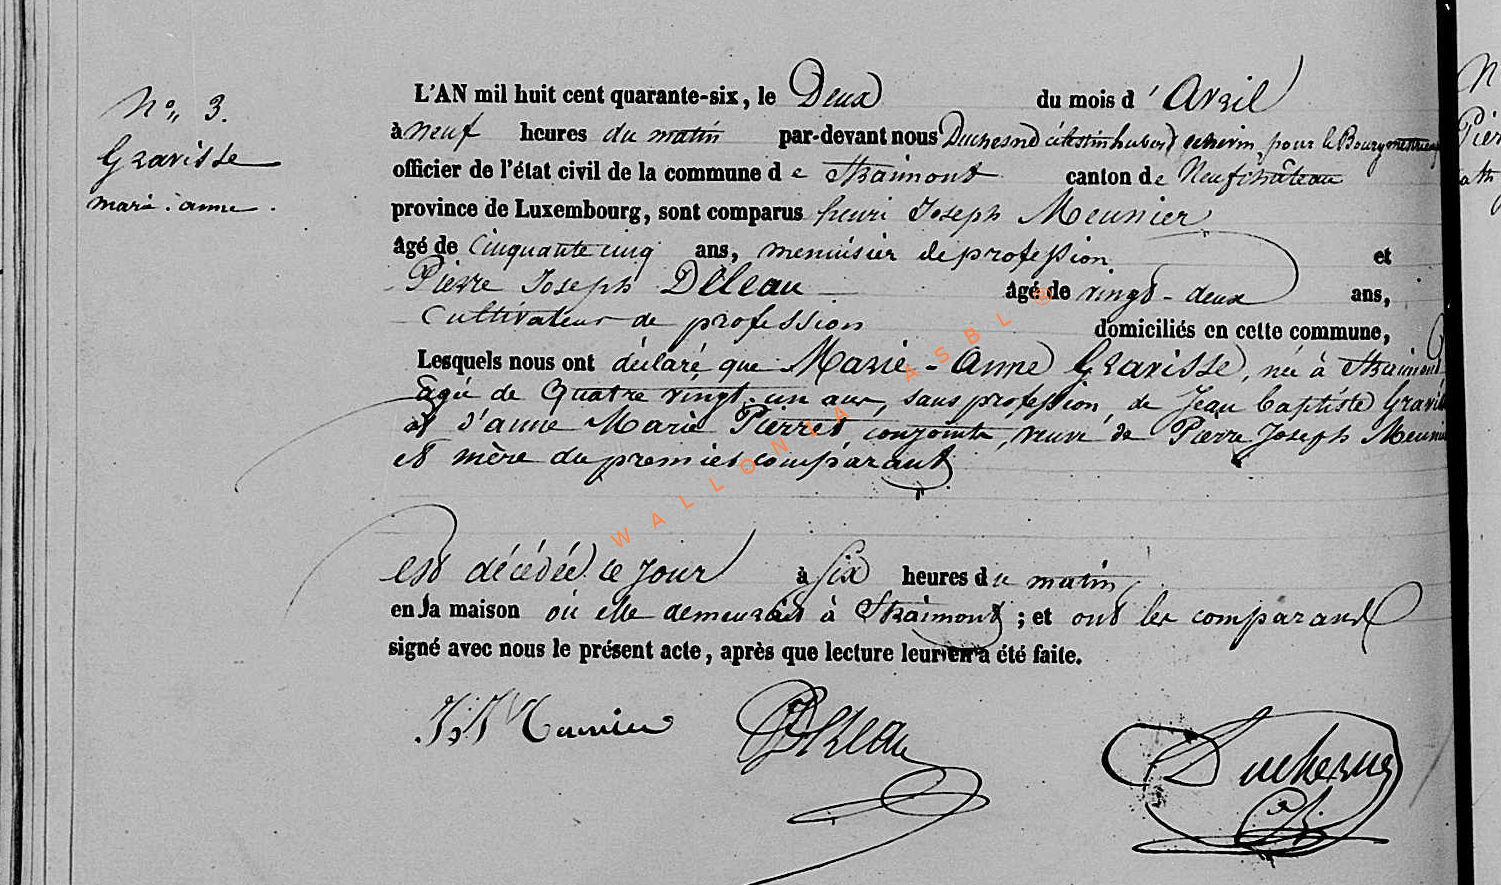 N° 3.
Gravisse
marie anne.
L'AN mil huit cent quarante-six, le Deux du mois d'Avril
à neuf heures du matin par-devant nous Duchesne célestin hubert echevin pour le Bourgmestre
officier de l'état civil de la commune de Straimont canton de Neufchâteau
province de Luxembourg, sont comparus henri Joseph Meunier
âgé de Cinquante cinq ans, menuisier de profession et
Pierre Joseph Deleau âgé de vingt-deux ans,
Cultivateur de profession domiciliés en cette commune,
Lesquels nous ont déclaré que Marie-Anne Gravisse, née à Straimont
agée de Quatre vingt-un ans, sans profession, de Jean baptiste Gravis
et d'anne Marie Pierret, conjoints, veuve de Pierre Joseph Meuni
et mère du premier comparant
est décédée ce jour à six heures du matin,
en sa maison où elle demeurait à Straimont ; et ont les comparans
signé avec nous le présent acte, après que lecture leur en a été faite.
H. J. Meunier
PJ Deleau
Duchesne
WALLONIA ASBL ©
N
Pier